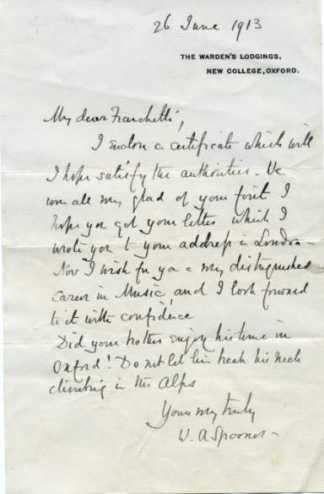 26 June 1913
THE WARDEN'S LODGINGS,
NEW COLLEGE, OXFORD.
My dear Franchetti,
I enclose a certificate which will
I hope satisfy the authorities. We
were all very glad of your first I
hope you got your letter which I
wrote you to your address in London
Now I wish for you a very distinguished
career in Music, and I look forward
to it with confidence
Did your brother enjoy his time in
Oxford? Do not let him break his neck
climbing in the Alps
Yours very truly
W. A Spooner